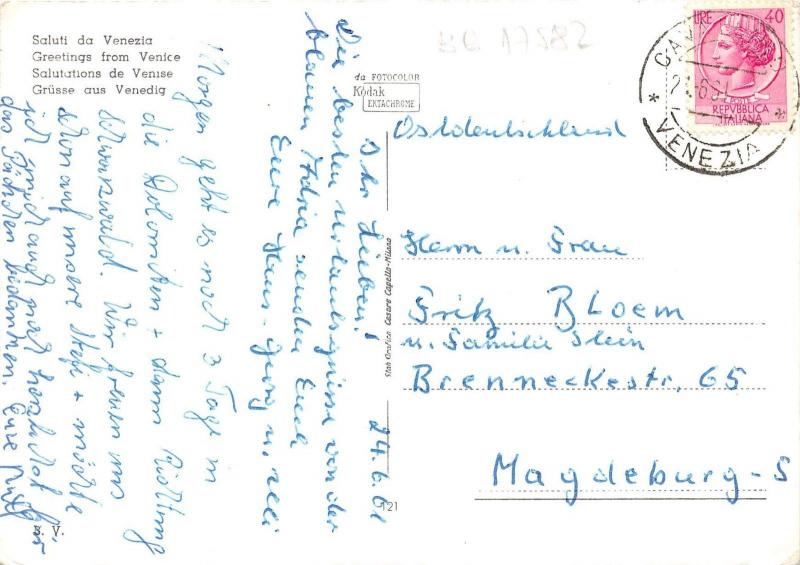 Saluti da Venezia
Greetings from Venice
Salutations de Venise
Grüsse aus Venedig
BC 17582
da FOTOCOLOR
Kodak
EKTACHROME
LIRE 40
POSTE
REPVBBLICA
ITALIANA
VENEZIA
Ostdeutschland
Herrn u. Frau
Fritz BLOEM
u. Familie Stein
Brenneckestr. 65
Magdeburg-S
24.6.61
Ihr Lieben!
Die besten Urlaubsgrüsse von der
blauen Adria senden Euch
Eure Hans-Georg u.
Morgen geht es noch 3 Tage in
die Dolomiten + dann Richtung
Schwarzwald. Wir freuen uns
schon auf unsere Stefi + möchte
ich mich auch noch herzlichst für
das Päckchen bedanken. Eure
Stab. Grafico Cesare Capello-Milano
121
S. V.